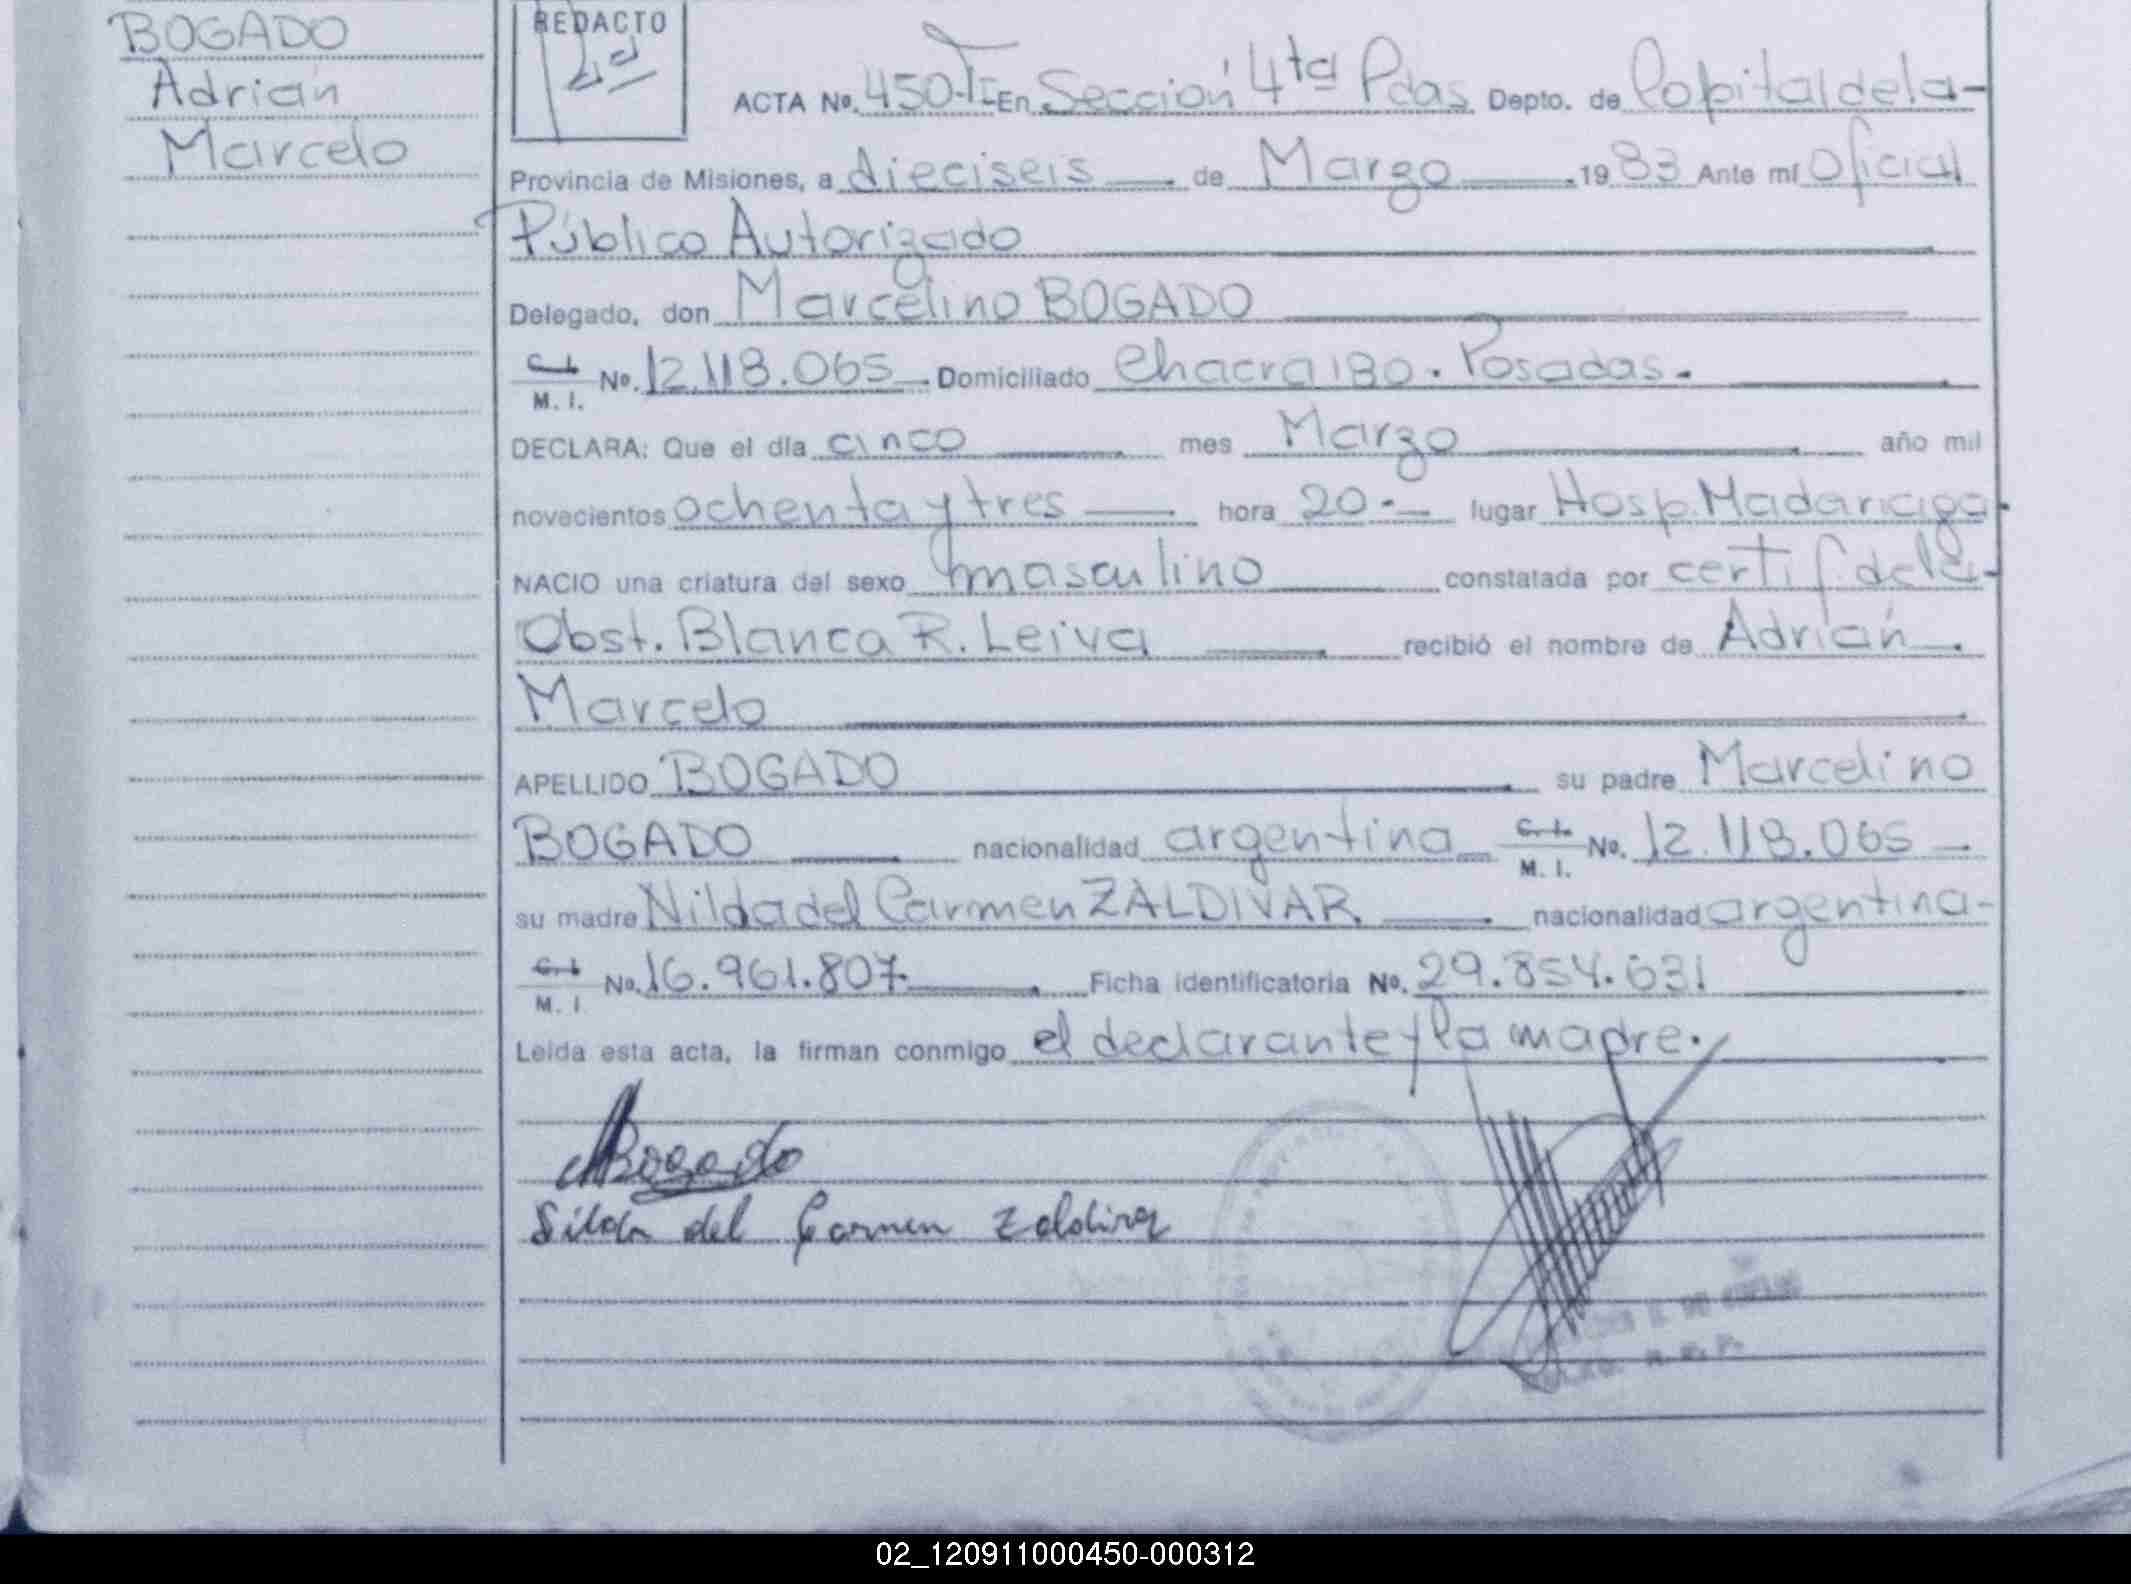 BOGADO
Adrián
Marcelo
REDACTO
ACTA No. 450-TI- En Sección 4ta Pdas Depto. de Capital de la-
Provincia de Misiones, a dieciseis de Marzo 1983 Ante mí Oficial
Público Autorizado
Delegado, don Marcelino BOGADO
C. I.
M. I. No. 12.118.065 Domiciliado Chacra 180. Posadas.
DECLARA: Que el día cinco mes Marzo año mil
novecientos ochenta y tres hora 20.- lugar Hosp. Madariaga
NACIO una criatura del sexo masculino constatada por certif. de la-
Obst. Blanca R. Leiva recibió el nombre de Adrián
Marcelo
APELLIDO BOGADO su padre Marcelino
BOGADO nacionalidad argentina C. I. M. I. No. 12.118.065
su madre Nilda del Carmen ZALDIVAR nacionalidad argentina-
C. I. M. I. No. 16.961.807 Ficha identificatoria No. 29.854.631
Leída esta acta, la firman conmigo el declarante y la madre.
MBogado
Nilda del Carmen Zaldivar
02_120911000450-000312